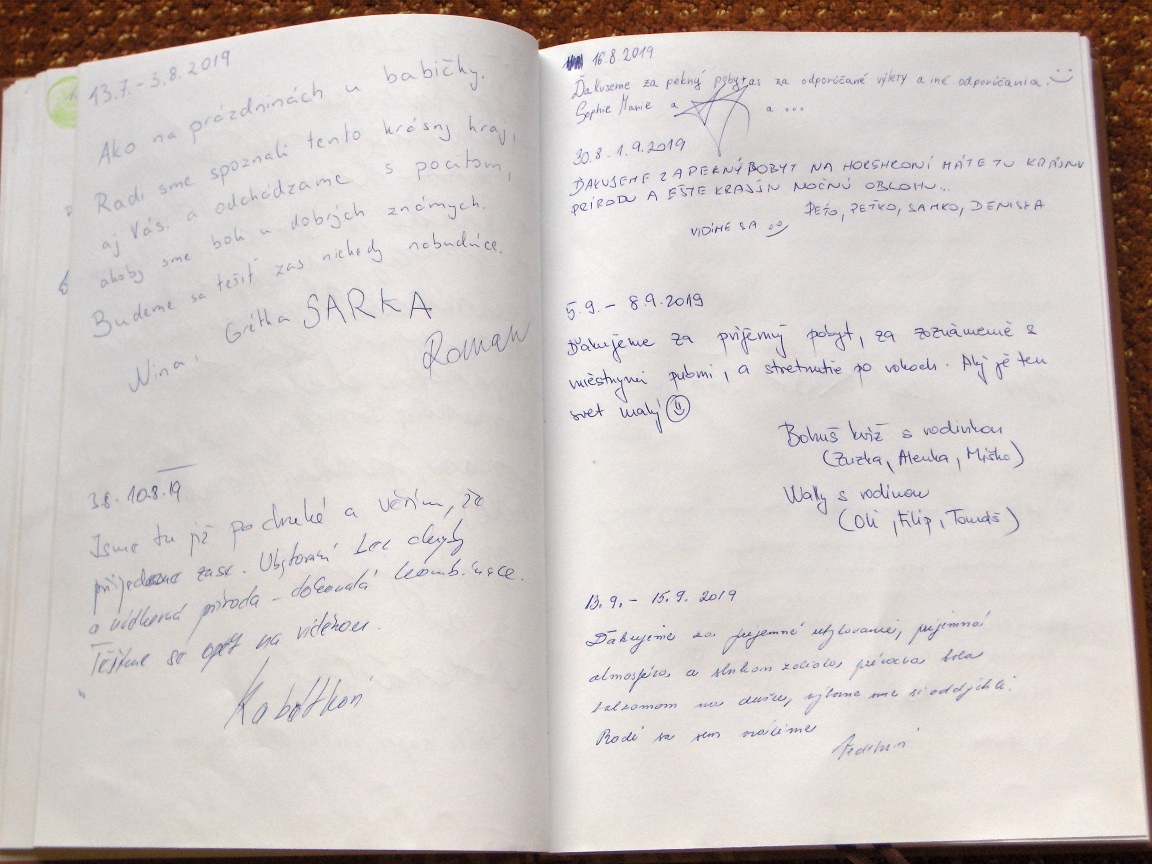 13.7. - 3.8.2019
Ako na prázdninách u babičky.
Radi sme spoznali tento krásny kraj,
aj Vás. a odchádzame s pocitom,
akoby sme boli u dobrých známych.
Budeme sa tešiť zas niekedy nabudúce.
Nina, Grétka SARKA
Roman
3.8. 10.8.19
Jsme tu již po druhé a věřím, že
přijedeme zase. Ubytování bez chyby
a nádherná příroda - dokonalá kombinace.
Těšíme se opět na viděnou.
16.8.2019
Ďakujeme za pekný pobyt, as za odporúčané výlety a iné odporúčania.
Sophie Marie a a ...
30.8.-1.9.2019
ĎAKUJEME ZA PEKNÝ POBYT NA HOREHRONÍ MÁTE TU KRÁSNU
PRÍRODU A EŠTE KRAJŠIU NOČNÚ OBLOHU...
PEŤO, PEŤKO, SAMKO, DENISKA
VIDÍME SA
5.9. - 8.9.2019
Ďakujeme za príjemný pobyt, za zoznámenie s
miestnymi pubmi, a stretnutie po rokoch. Aký je ten
svet malý
Bohuš s rodinkou
(Zuzka, Alenka, Miško)
Wally s rodinou
(Oli, Filip, Tomáš)
13.9. - 15.9. 2019
Ďakujeme za príjemné ubytovanie, príjemnú
atmosféru a slnkom zaliata príroda bola
balzamom na dušu, výborne sme si oddýchli.
Radi sa sem vrátime